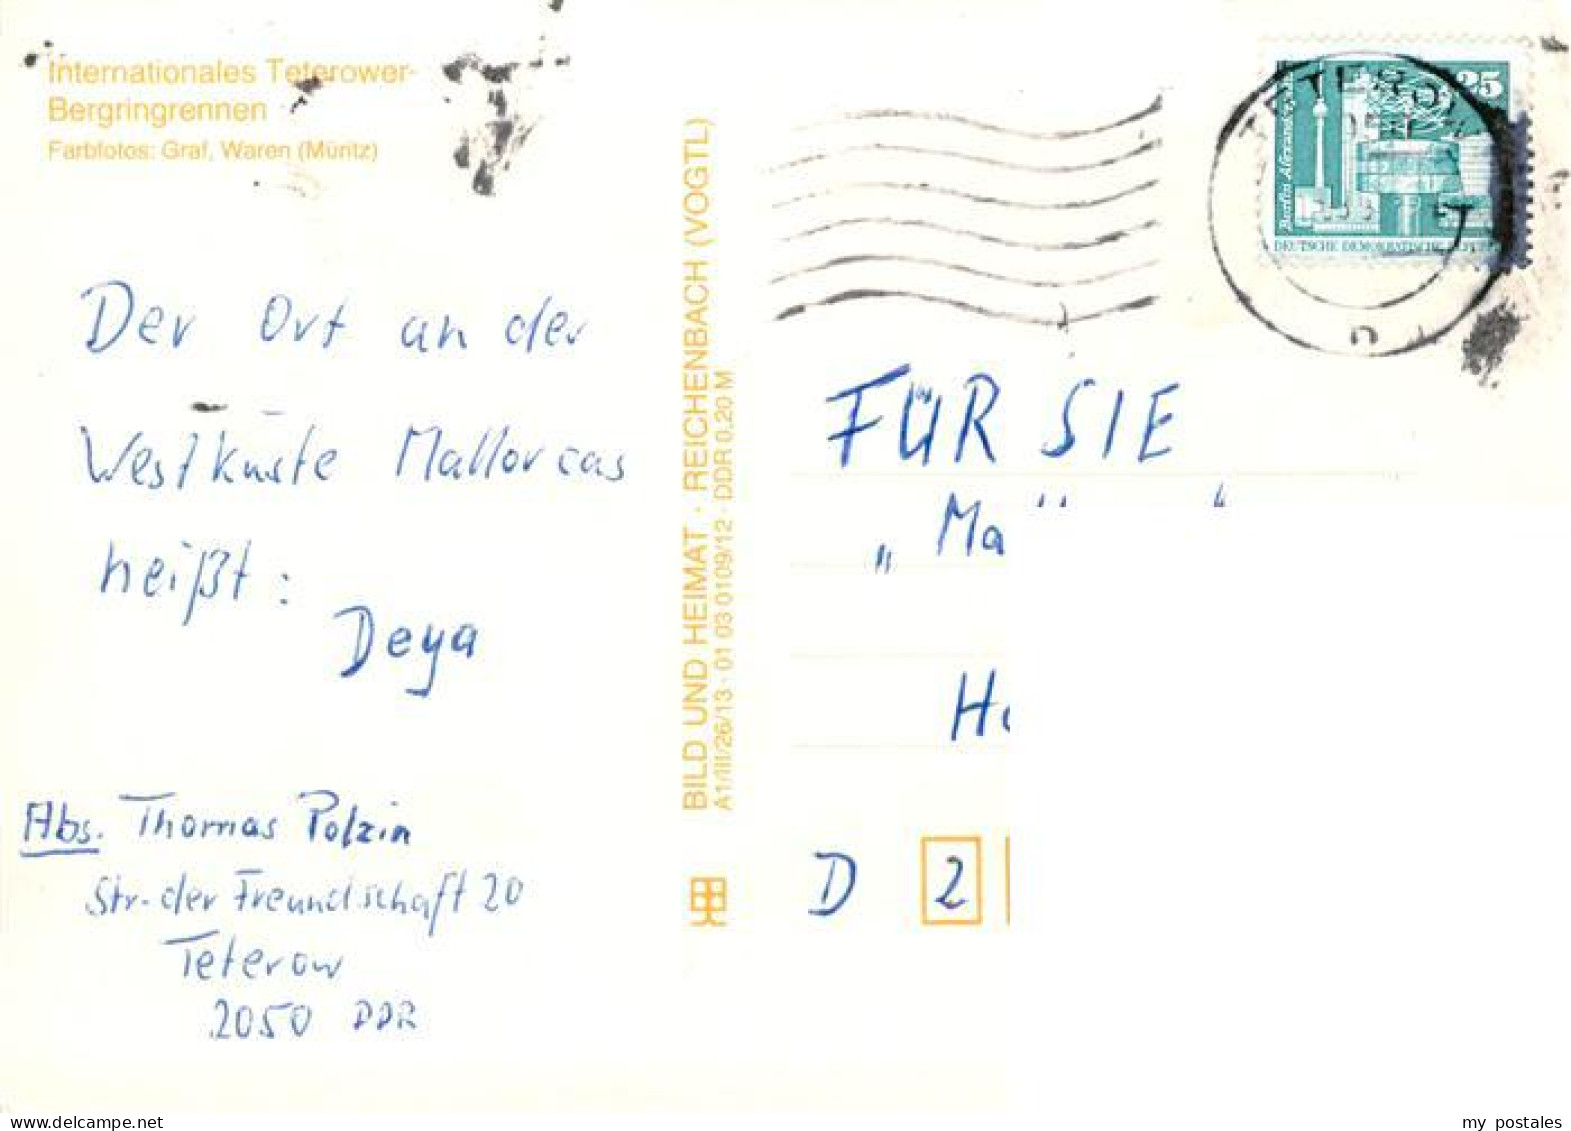 Internationales Teterower-
Bergringrennen
Farbfotos: Graf, Waren (Müritz)
Der Ort an der
Westküste Mallorcas
heißt:
Deya
Abs. Thomas Polzin
Str. der Freundschaft 20
Teterow
2050 DDR
BILD UND HEIMAT · REICHENBACH (VOGTL)
A1/III/26/13 · 01 03 0109/12 · DDR 0,20 M
25
Berlin, Alexanderplatz
DEUTSCHE DEMOKRATISCHE
TETEROW
FÜR SIE
„Ma
D 2
my postales